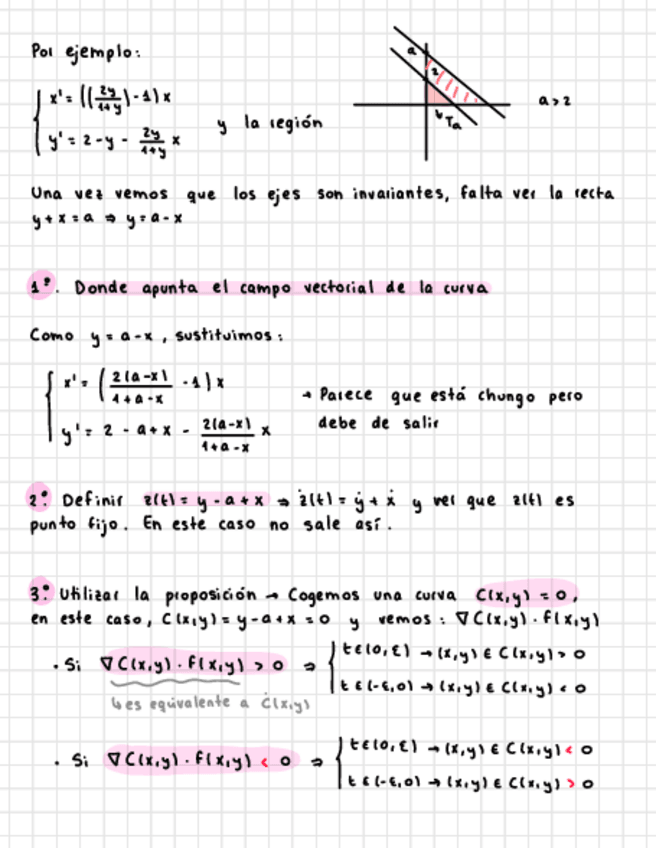 Por ejemplo:
x' = ((2y/1+y) - 1) x
y' = 2 - y - 2y/1+y x
y la región
a
2
Ta
a > 2
Una vez vemos que los ejes son invariantes, falta ver la recta
y + x = a ⇒ y = a - x
1º. Donde apunta el campo vectorial de la curva
Como y = a - x, sustituimos:
x' = (2(a-x)/1+a-x - 1) x
y' = 2 - a + x - 2(a-x)/1+a-x x
→ Parece que está chungo pero
debe de salir
2º: Definir z(t) = y - a + x ⇒ ż(t) = ẏ + ẋ y ver que z(t) es
punto fijo. En este caso no sale así.
3º: Utilizar la proposición → Cogemos una curva C(x,y) = 0,
en este caso, C(x,y) = y - a + x = 0 y vemos: ∇C(x,y) · f(x,y)
· Si ∇C(x,y) · f(x,y) > 0 ⇒
t ∈ (0, ε) → (x,y) ∈ C(x,y) > 0
t ∈ (-ε, 0) → (x,y) ∈ C(x,y) < 0
↳ es equivalente a Ċ(x,y)
· Si ∇C(x,y) · f(x,y) < 0 ⇒
t ∈ (0, ε) → (x,y) ∈ C(x,y) < 0
t ∈ (-ε, 0) → (x,y) ∈ C(x,y) > 0